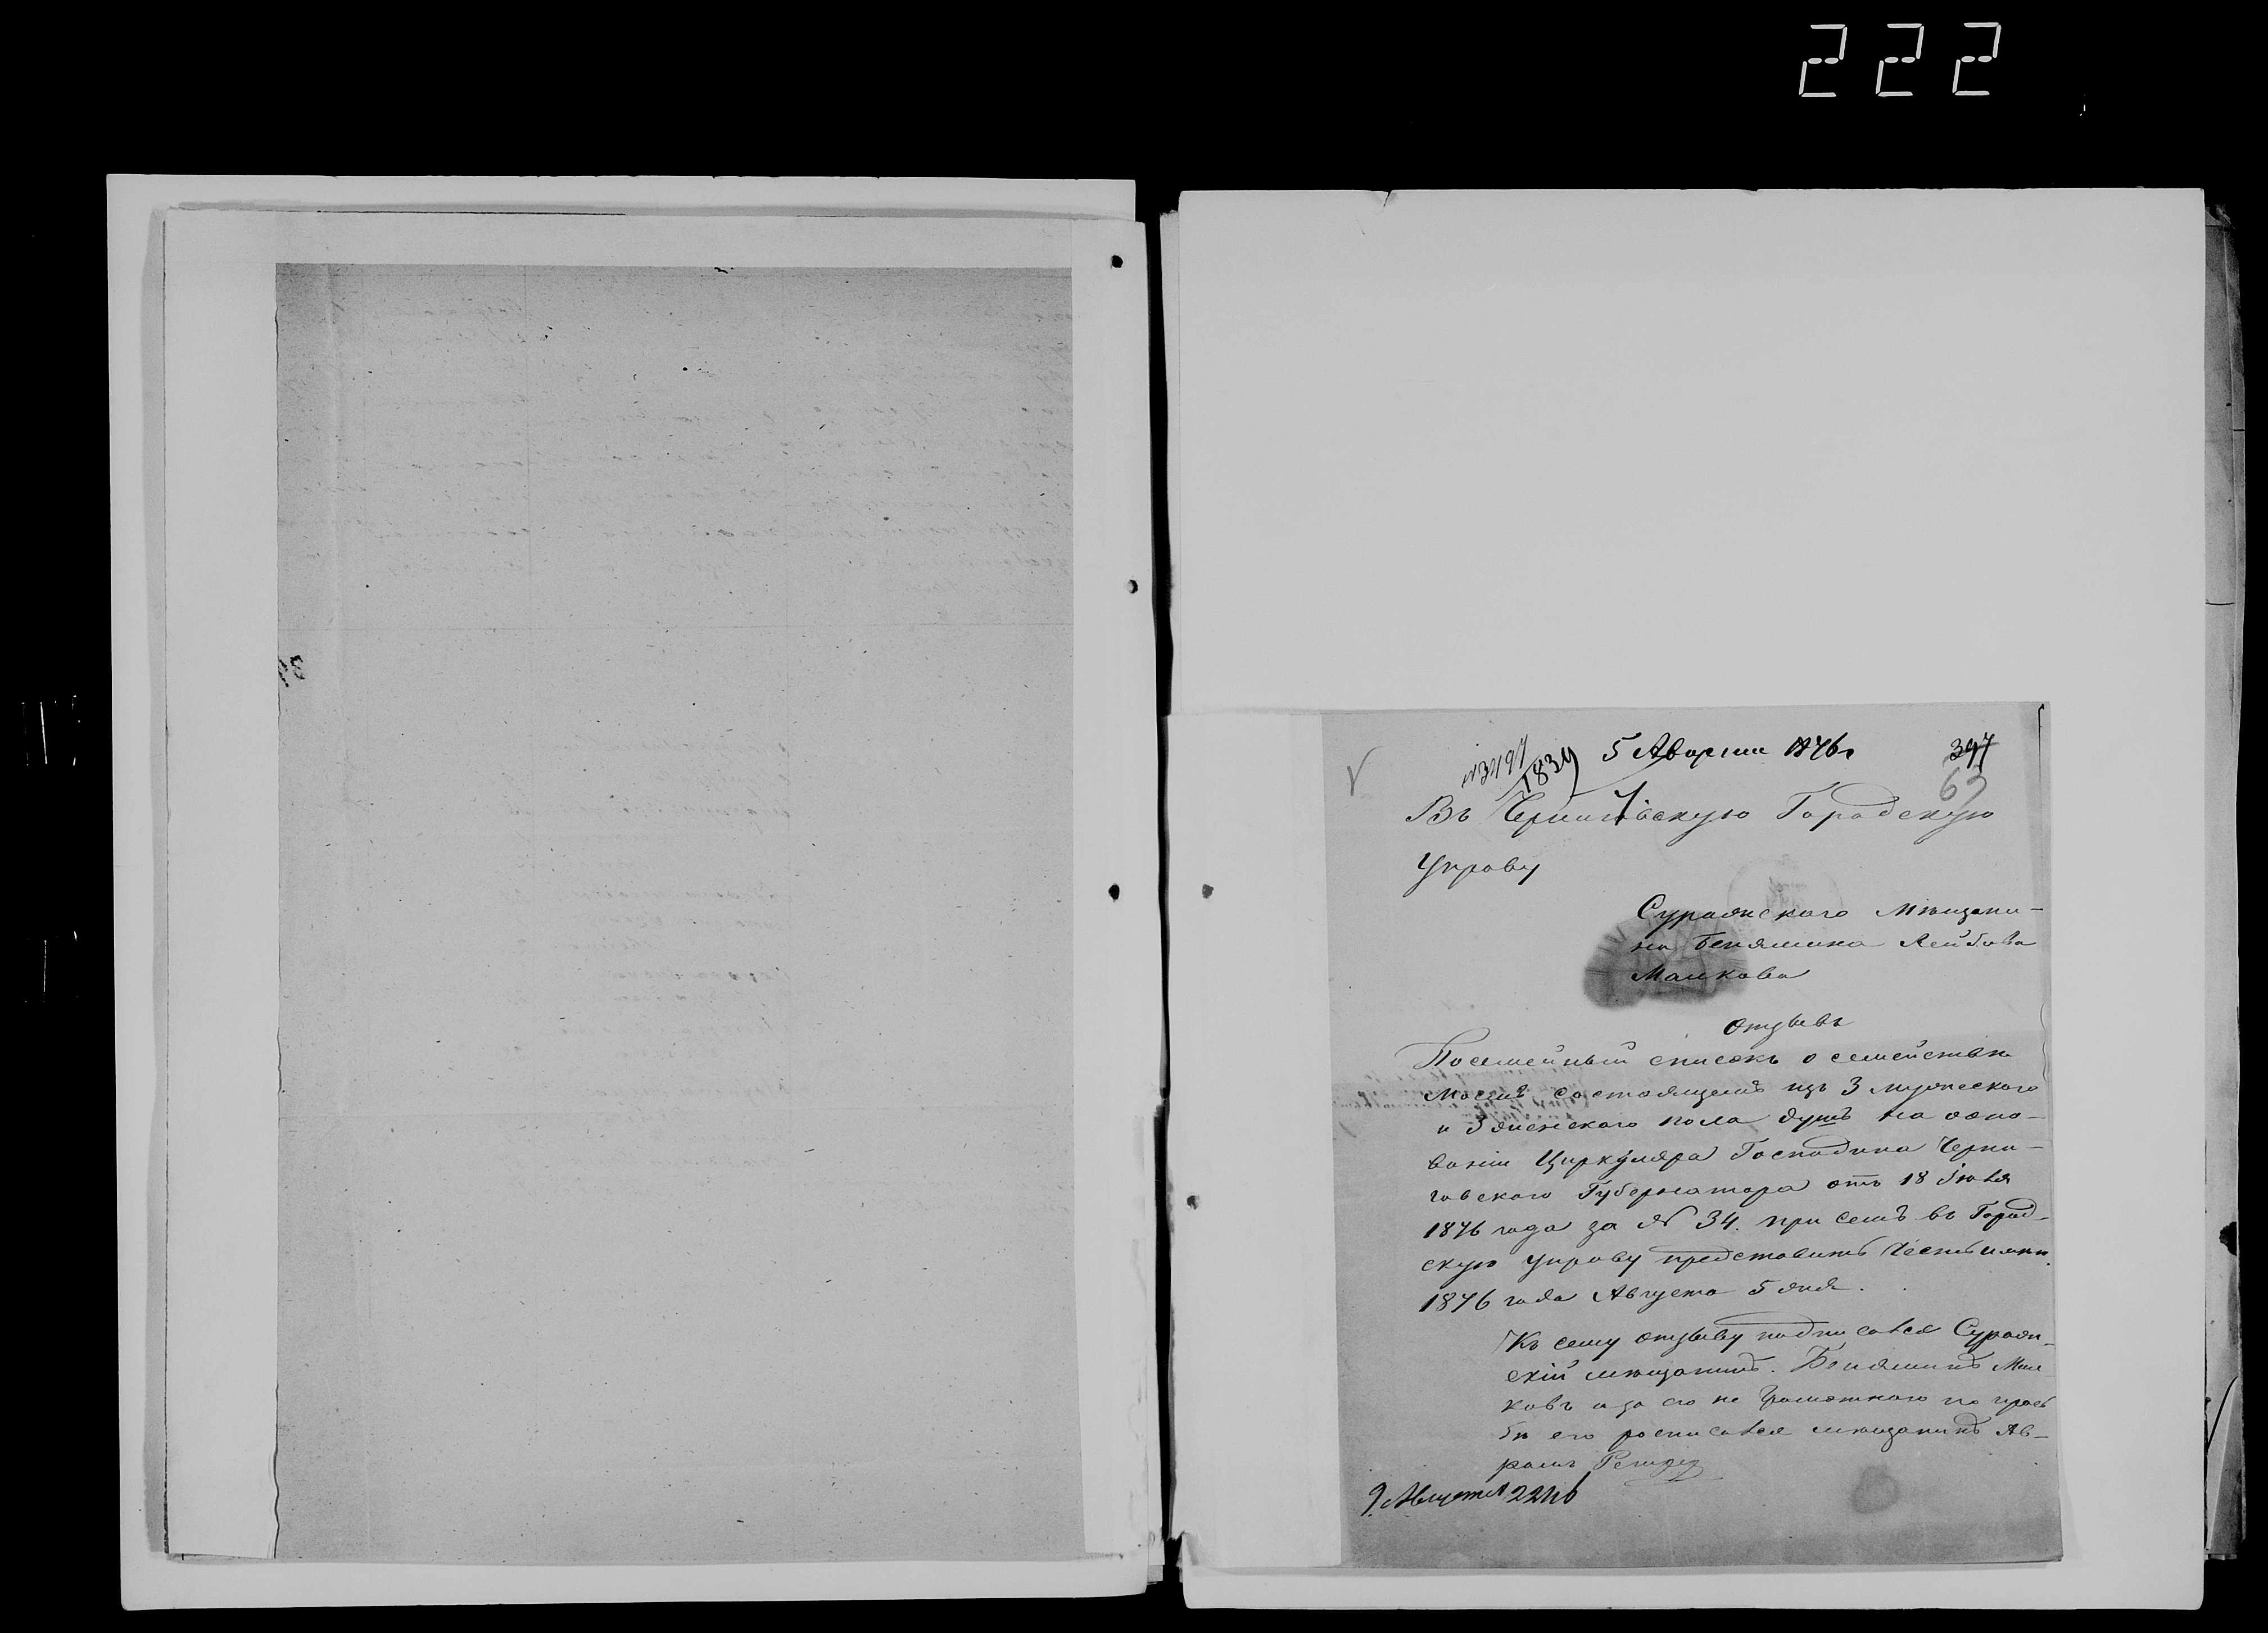 222
5 Августа 1876 г
397
63
№ 3497
1839
Въ Черниговскую Городскую
Управу
Суражскаго Мѣщани-
на Беніямина Лейбова
Малкова
Отзывъ
Посемейный списокъ о семействѣ
моемъ состоящемъ изъ 3 мужескаго
и 3 женскаго пола душъ на осно-
ваніи Циркуляра Господина Черни-
говскаго Губернатора отъ 18 Іюля
1876 года за № 34. при семъ въ Город-
скую Управу представить честь имѣю.
1876 года Августа 5 дня.
Къ сему отзыву подписался Сураж-
скій мѣщанинъ. Беніяминъ Мал
ковъ а за его не грамотного по прось
бѣ его росписался мѣщанинъ Аб-
рамъ
9 Августа 2246